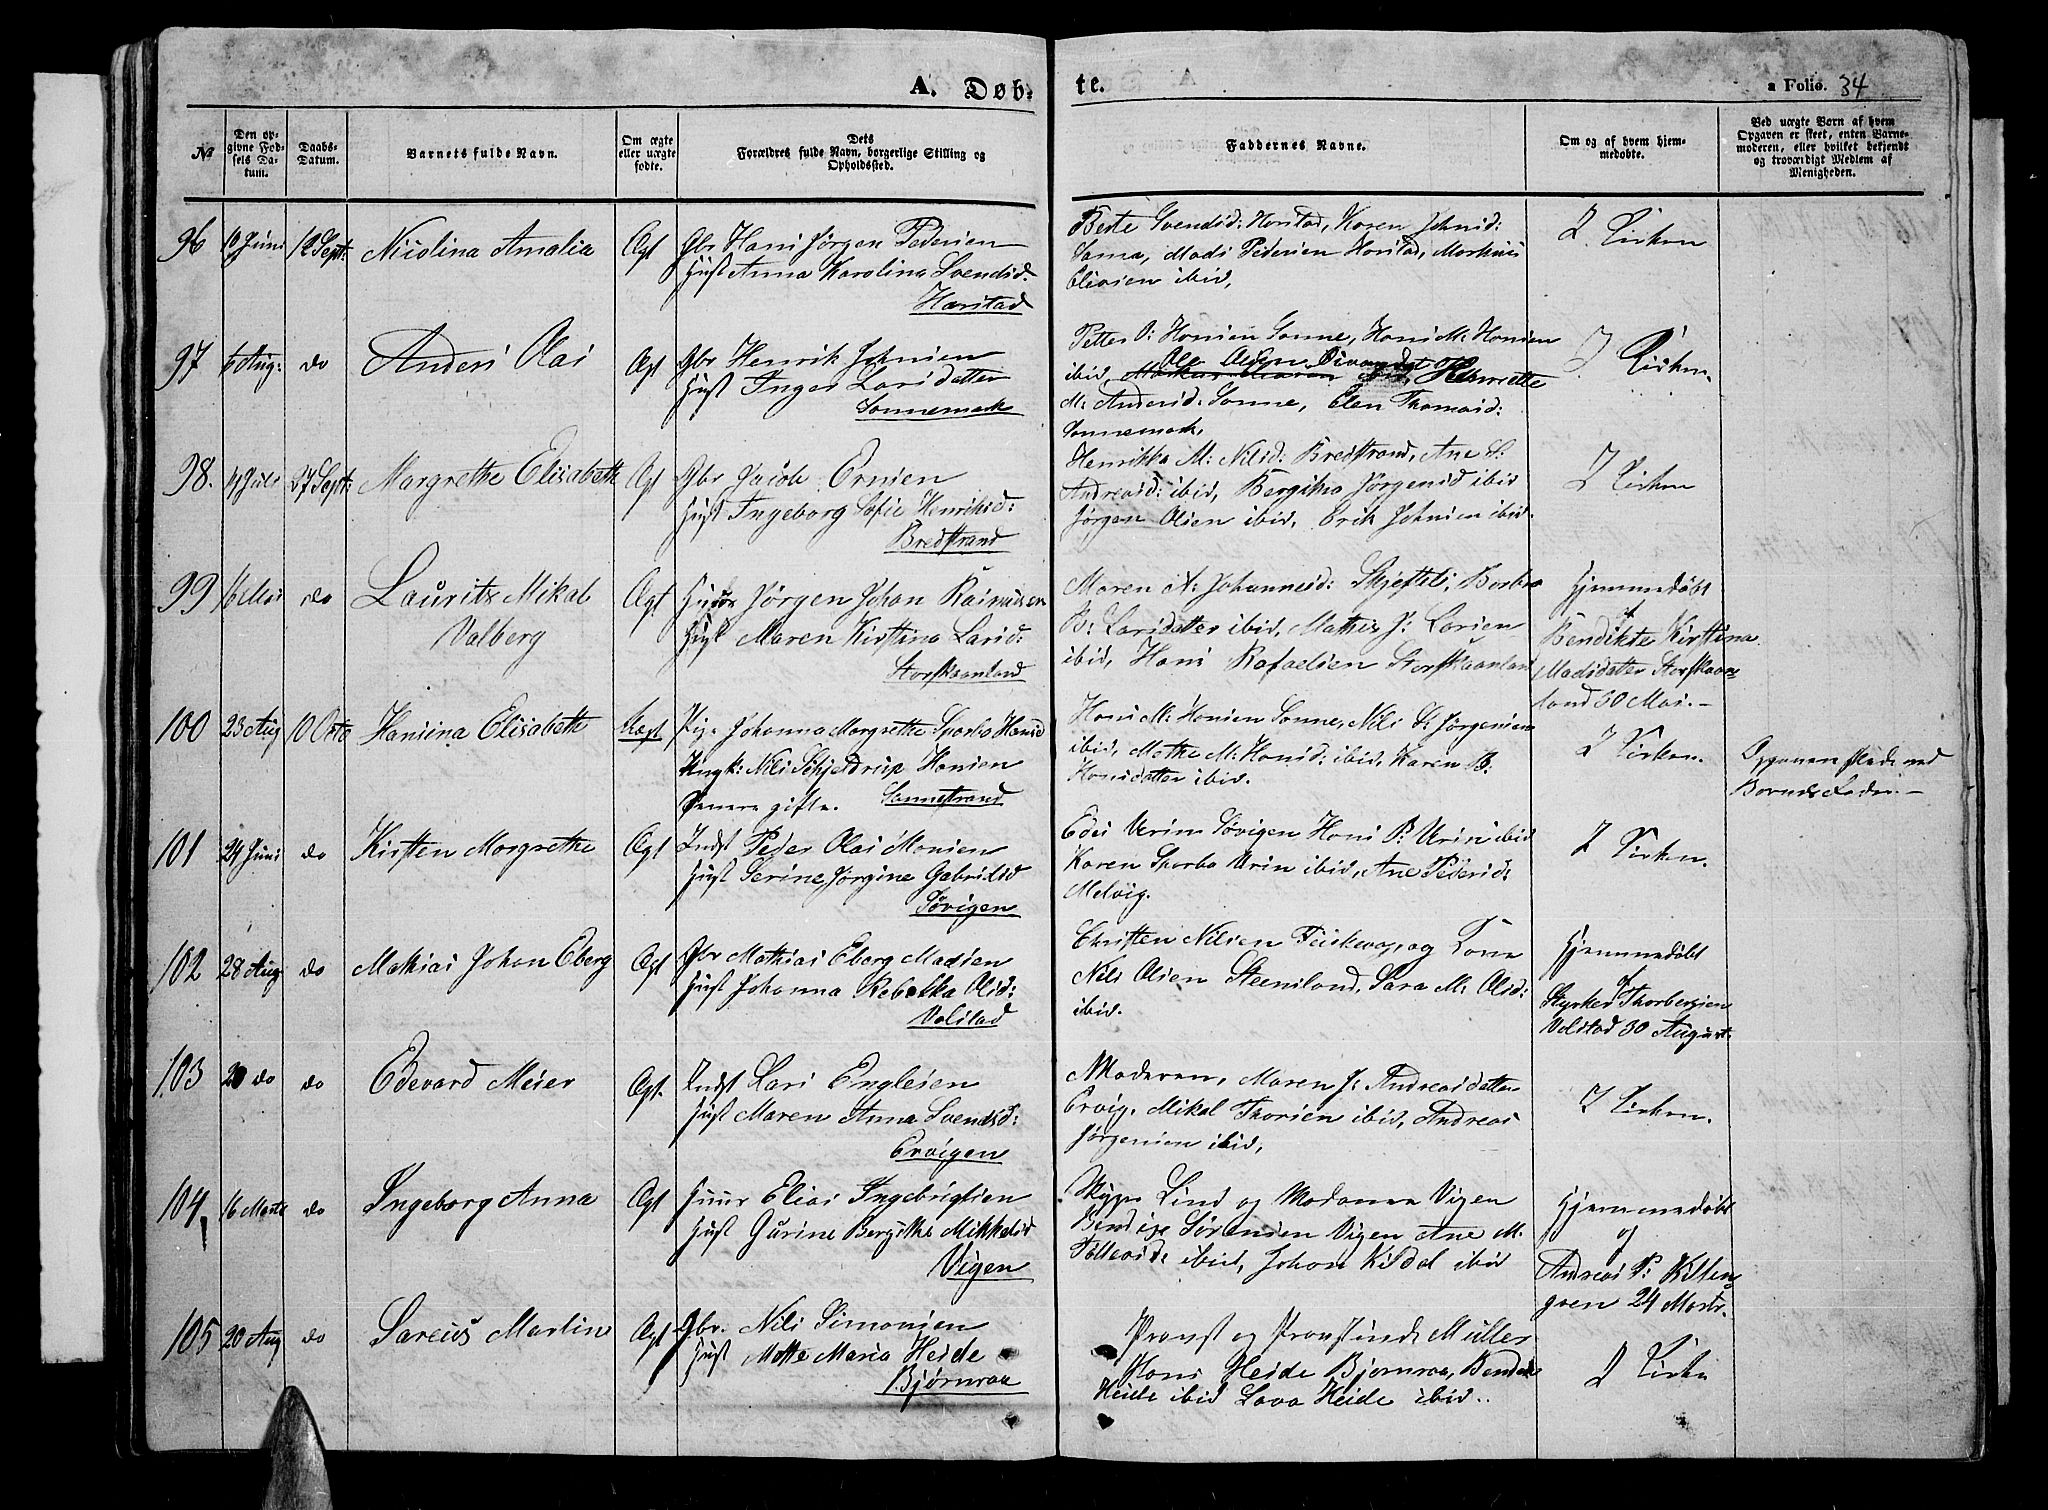 A. Døb-
te.
a Folio. 34
No
Den op-
givne Fød-
sels Da-
tum.
Daabs-
Datum.
Barnets fulde Navn.
Om ægte
eller uægte
fødte.
Dets
Forældres fulde Navn, borgerlige Stilling og
Opholdssted.
Faddernes Navne.
Om og af hvem hjem-
medøbte.
Ved uægte Børn af hvem
Opgaven er skeet, enten Barne-
moderen, eller hvilket bekjendt
og troværdigt Medlem af
Menigheden.
96 10 Juni 12 Sept: Nicolina Amalia Ægt Gbr Hans Jørgen Pedersen
Hust Anna Karolina Svendsd.
Harstad
Berte Svendsd: Harstad, Karen Johnsd:
Sama, Mads Pedersen Harstad, Markus
Eliasen ibid,
I Kirken
97 6 Aug: do Anders Olai Ægt Gbr Henrik Johnsen
Hust Inger Larsdatter
Sannemark
Petter O: Hansen Sanne, Hans M: Hansen
ibid, Henriette
M: Andersd: Sanne, Elen Thomasd:
Sannemark,
I Kirken.
98. 4 Juli 27 Sept: Margrethe Elisabeth Ægt Gbr Jacob Ernsen
Hust Ingeborg Sofie Henriksd:
Bredstrand
Henrikka M: Nilsd: Bredstrand, Ane S:
Andreasd: ibid, Bergitha Jørgensd ibid
Jørgen Olsen ibid, Erik Johnsen ibid.
I Kirken
99 16 Mai do Laurits Mikal
Valberg
Ægt Jørgen Johan Rasmusen
Hust Maren Kirstina Larsd:
Storskaanland
Maren A: Johannesd: Skjeftels, Barbra
B: Larsdatter ibid, Mathis J: Larsen
ibid, Hans Rafaelsen Storskaanland
Hjemmedøbt
af
Bendikte Kirstina
Madsdatter Storskaan-
land 30 Mai.
100 23 Aug 10 Octo Hansina Elisabeth Uægt Pige Johanna Margrethe Sparbo Hansd
Ungk: Nils Schjeldrup Hansen
Senere gifte. Sannestrand
Hans M: Hansen Sanne, Nils S: Jørgensen
ibid, Mathe M: Hansd: ibid, Karen B:
Hansdatter ibid.
I Kirken.
Opgaven skede ved
Barnets Fader.
101 24 Juni do Kirsten Margrethe Ægt Indst Peder Olai Monsen
Hust Serine Jørgine Gabrielsd
Søvigen
Edes Urin Søvigen Hans P: Urin ibid
Karen Sparbo Urin ibid, Ane Pedersd:
Melvig.
I Kirken.
102 28 Aug do Mathias Johan Eberg Ægt Gbr Mathias Eberg Madsen
Hust Johanna Rebekka Olsd:
Volstad
Christen Nilsen Fuskevaag, og Kone
Nils Olsen Steensland, Sara M: Olsd:
ibid.
Hjemmedøbt
af
Styrker Thorbergsen
Volstad 30 August.
103 20 do do Edevard Meier Ægt. Indst Lars Englesen
Hust Maren Anna Svendsd:
Ervigen
Moderen, Maren J: Andreasdatter
Ervig, Mikal Thorsen ibid, Andreas
Jørgensen ibid,
I Kirken.
104 16 Marts do Ingeborg Anna Ægt Huus Elias Ingebrigtsen
Hust Gurine Bergitha Mikkelsd
Vigen
Lind og Madamm Vigen
Bendix Sørensen Vigen Ane M.
Tollevsd: ibid, Johan Kildal ibid
Hjemmedøbt
af
Andreas P: Killen-
gren 24 Marts.
105 20 Aug do Sareus Martin Ægt Gbr. Nils Simonsen
Hust Mette Maria Heide
Bjørnraa
Provst og Provstinde Müller
Hans Heide Bjørnraa,
Heide ibid Lava Heide ibid.
I Kirke